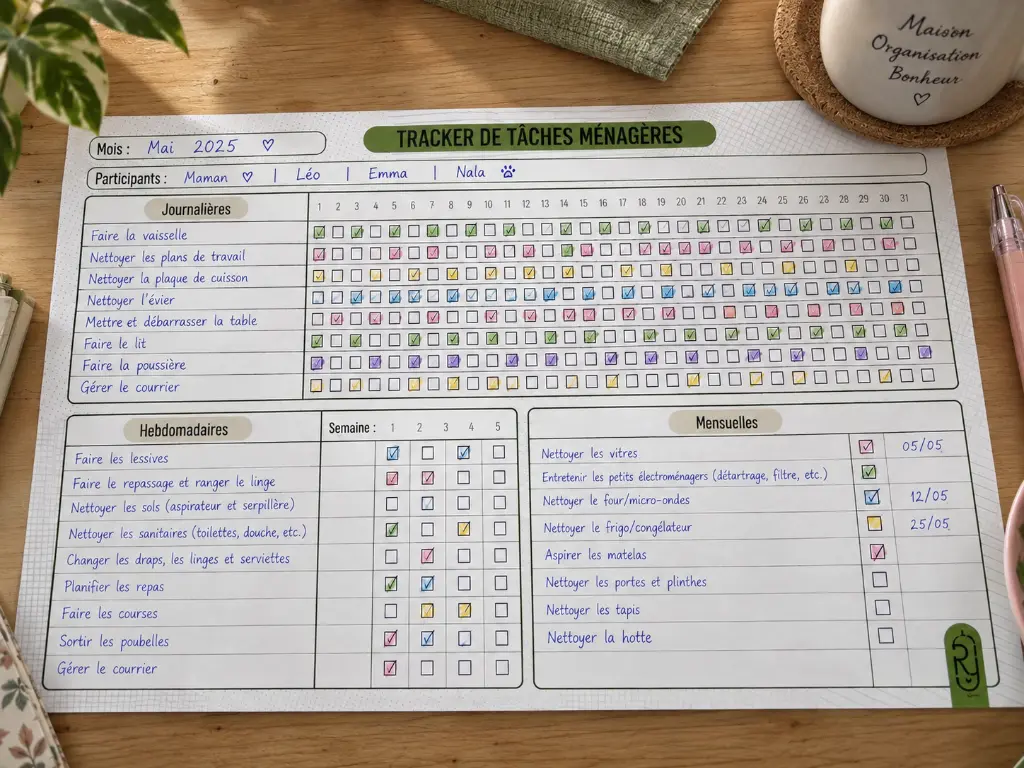 Maison
Organisation
Bonheur
TRACKER DE TÂCHES MÉNAGÈRES
Mois : Mai 2025
Participants : Maman | Léo | Emma | Nala
Journalières 1 2 3 4 5 6 7 8 9 10 11 12 13 14 15 16 17 18 19 20 21 22 23 24 25 26 27 28 29 30 31
Faire la vaisselle
Nettoyer les plans de travail
Nettoyer la plaque de cuisson
Nettoyer l'évier
Mettre et débarrasser la table
Faire le lit
Faire la poussière
Gérer le courrier
Hebdomadaires Semaine : 1 2 3 4 5
Faire les lessives
Faire le repassage et ranger le linge
Nettoyer les sols (aspirateur et serpillère)
Nettoyer les sanitaires (toilettes, douche, etc.)
Changer les draps, les linges et serviettes
Planifier les repas
Faire les courses
Sortir les poubelles
Gérer le courrier
Mensuelles
Nettoyer les vitres 05/05
Entretenir les petits électroménagers (détartrage, filtre, etc.)
Nettoyer le four/micro-ondes 12/05
Nettoyer le frigo/congélateur 25/05
Aspirer les matelas
Nettoyer les portes et plinthes
Nettoyer les tapis
Nettoyer la hotte